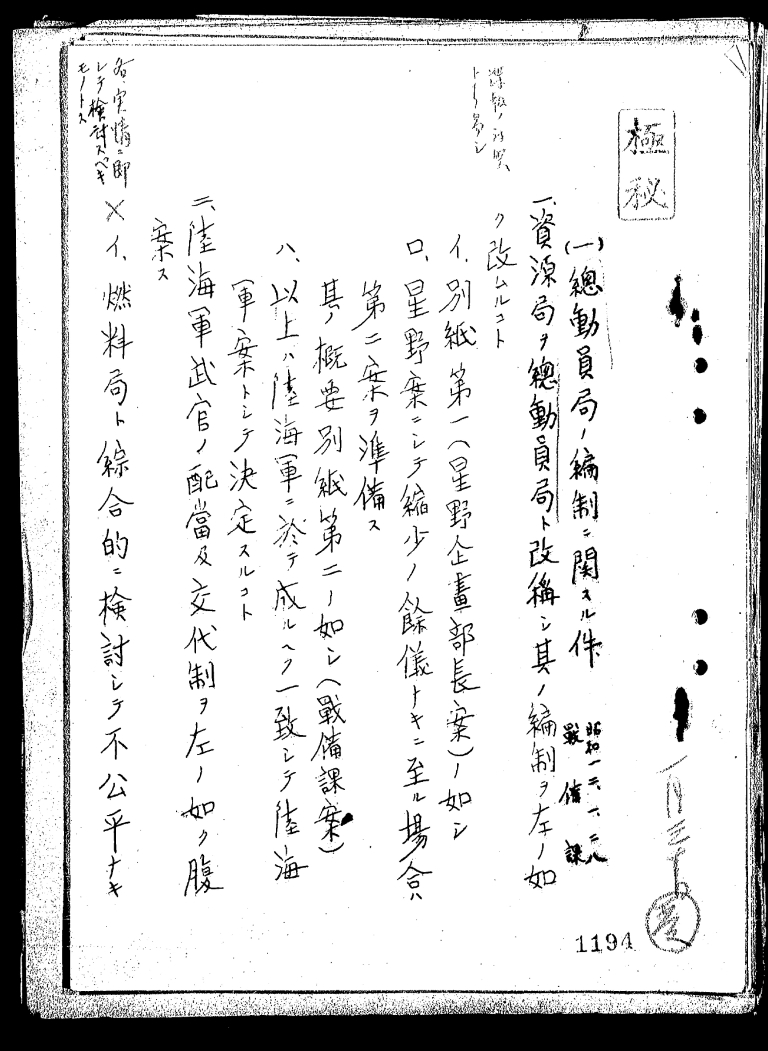 極秘
(一)總動員局ノ編制ニ関スル件
昭和一二、一、二八
戰備課
一、資源局ヲ總動員局ト改稱シ其ノ編制ヲ左ノ如
ク改ムルコト
イ、別紙第一(星野企畫部長案)ノ如シ
ロ、星野案ニシテ縮少ノ餘儀ナキニ至ル場合ハ
第二案ヲ準備ス
其ノ概要別紙第二ノ如シ(戰備課案)
ハ、以上ハ陸海軍ニ於テ成ルヘク一致シテ陸海
軍案トシテ決定スルコト
二、陸海軍武官ノ配當及交代制ヲ左ノ如ク腹
案ス
×イ、燃料局ト綜合的ニ検討シテ不公平ナキ
各実情ニ即
シテ検討スベキ
モノトス
一月三十日
1194